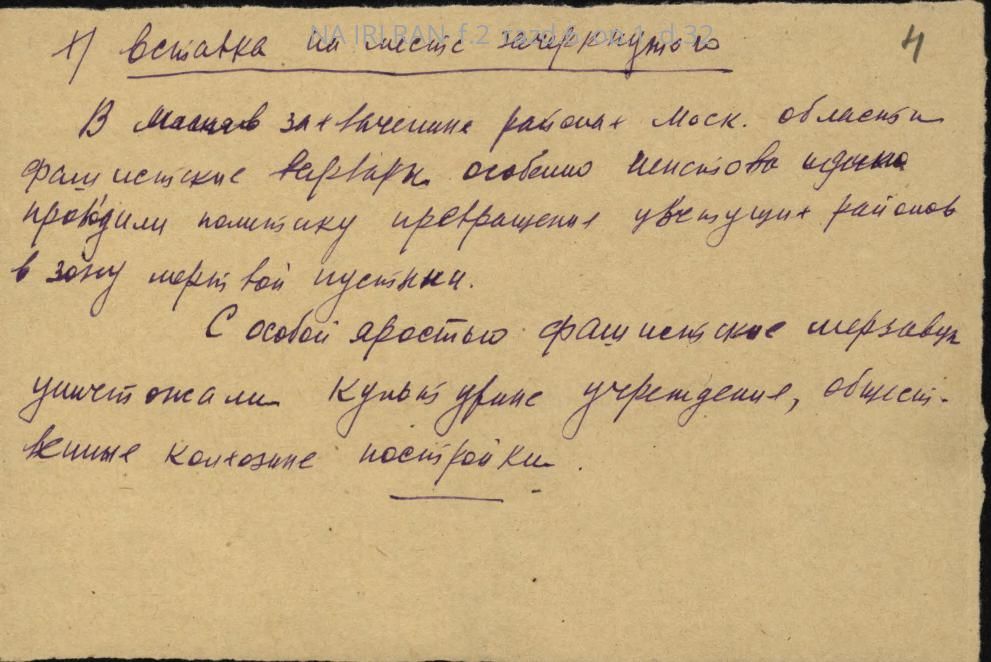 NA IRI RAN f.2 razd.6 op.1 d.32
х) вставка на место зачеркнутого
4
В захваченных районах Моск. области
фашистские варвары особенно неистово
проводили политику превращения цветущих районов
в зону мертвой пустыни.
С особой яростью фашистские мерзавцы
уничтожали культурные учреждения, общест-
венные колхозные постройки.